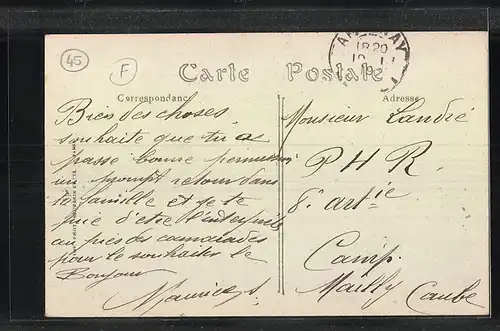 45
F
ARTENAY
18 20
Carte Postale
Correspondance
Adresse
Bien des choses,
souhaite que tu a
passé bonne permission
un prompt retour dans
ta famille et je te
prie d'être l'interprète
au près des camarades
pour le souhaiter le
Bonjour
Maurice
Monsieur Landré
P H R
8e artie
Camp
Mailly (aube